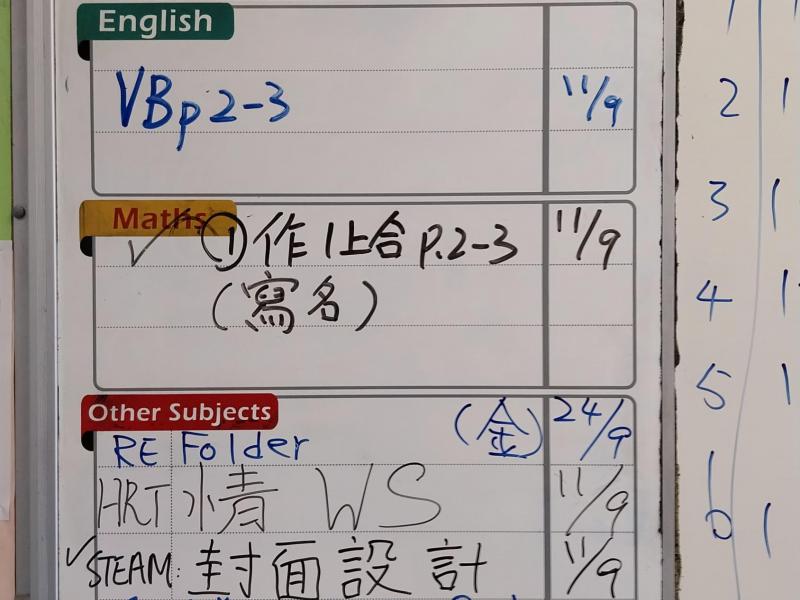 English
VBp2-3 11/9
Maths
✓ ①作1上合P.2-3 11/9
(寫名)
Other Subjects
RE Folder (金) 24/9
HRT 情 WS 11/9
✓STEAM: 封面設計 11/9
2 1
3 1
4 1
5 1
6 1